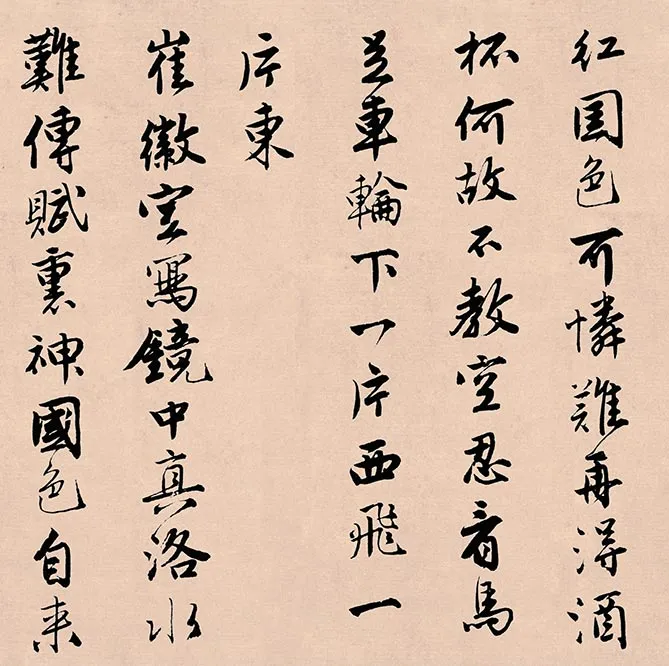 紅国色可憐難再得酒
杯何故不教空忍看馬
足車輪下一片西飛一
片東
崔徽空寫鏡中真洛水
難傳賦裏神國色自来